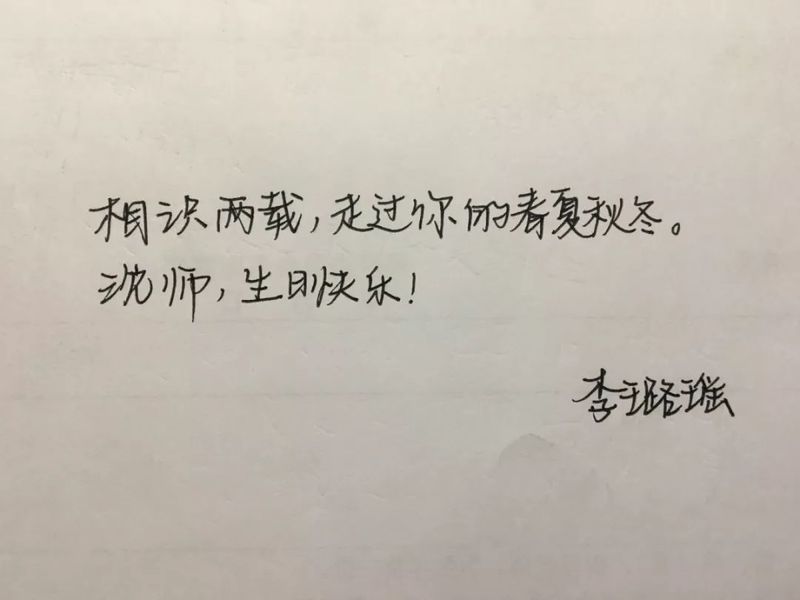 相识两载，走过你的春夏秋冬。
沈师，生日快乐！
李璐瑶